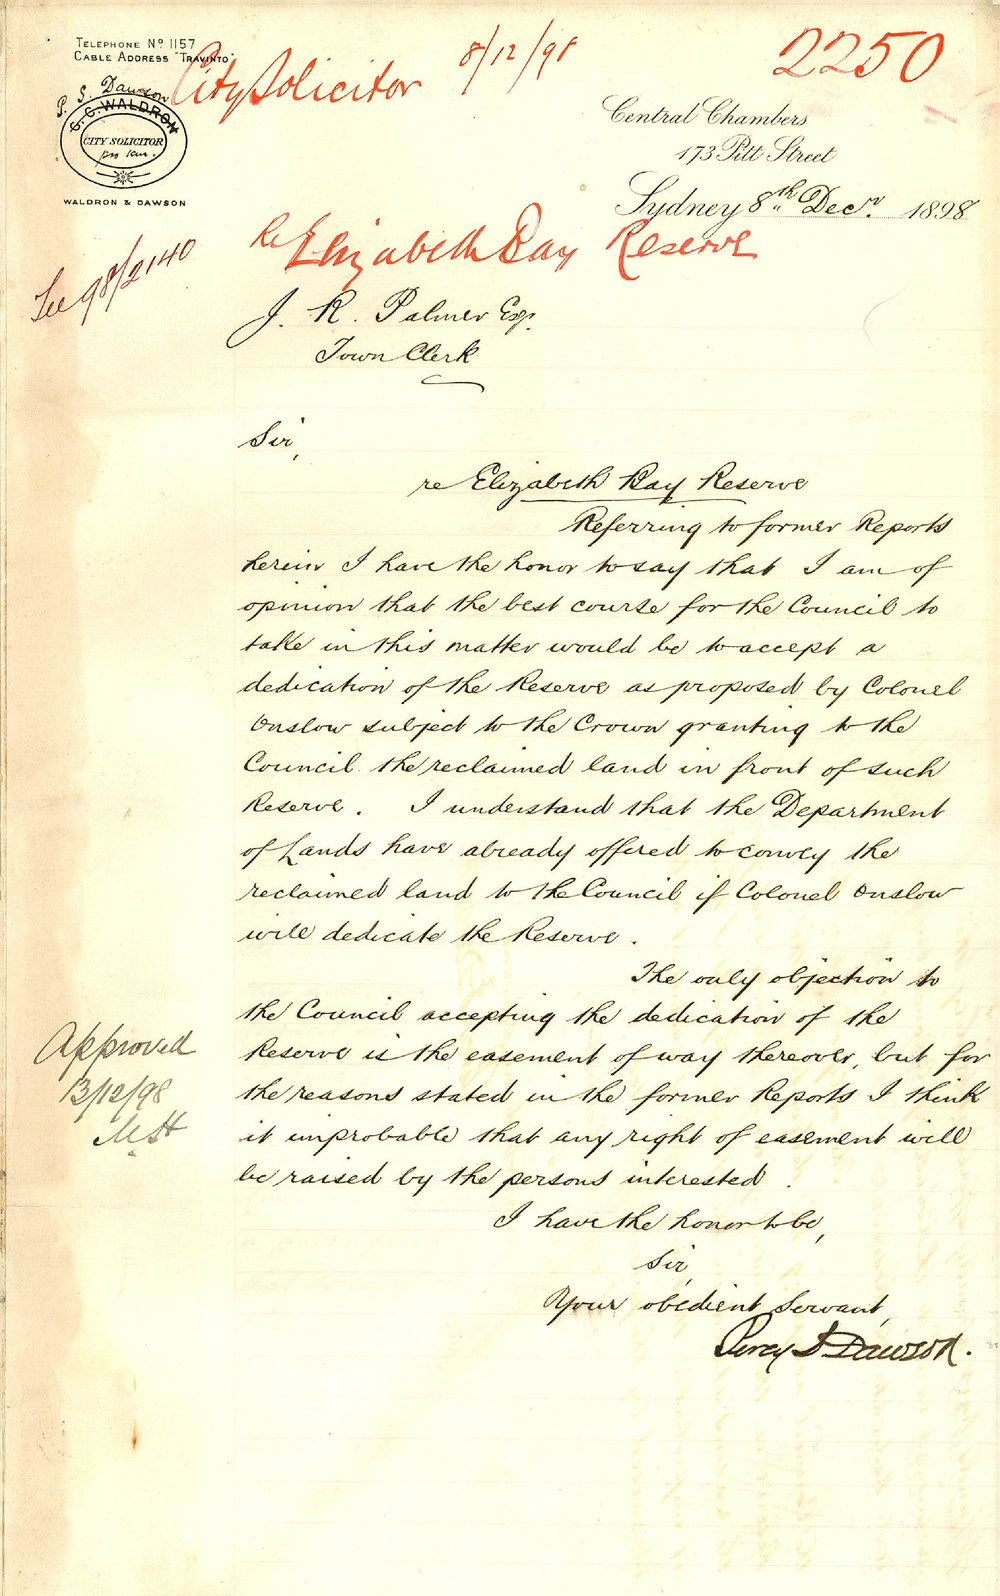 TELEPHONE No 1157
CABLE ADDRESS "TRAVINTO"
City Solicitor 8/12/98
2250
P. S. Dawson
G. C. WALDRON
CITY SOLICITOR
pro tem.
WALDRON & DAWSON
Central Chambers
173 Pitt Street
Sydney 8th Decr. 1898
Re Elizabeth Bay Reserve
See 98/2140
J. R. Palmer Esq.
Town Clerk
Sir,
re Elizabeth Bay Reserve
Referring to former Reports
herein I have the honor to say that I am of
opinion that the best course for the Council to
take in this matter would be to accept a
dedication of the Reserve as proposed by Colonel
Onslow subject to the Crown granting to the
Council the reclaimed land in front of such
Reserve. I understand that the Department
of Lands have already offered to convey the
reclaimed land to the Council if Colonel Onslow
will dedicate the Reserve.
The only objection to
the Council accepting the dedication of the
Reserve is the easement of way thereover, but for
the reasons stated in the former Reports I think
it improbable that any right of easement will
be raised by the persons interested.
Approved
13/12/98
I have the honor to be,
Sir,
Your obedient Servant,
Percy S Dawson.